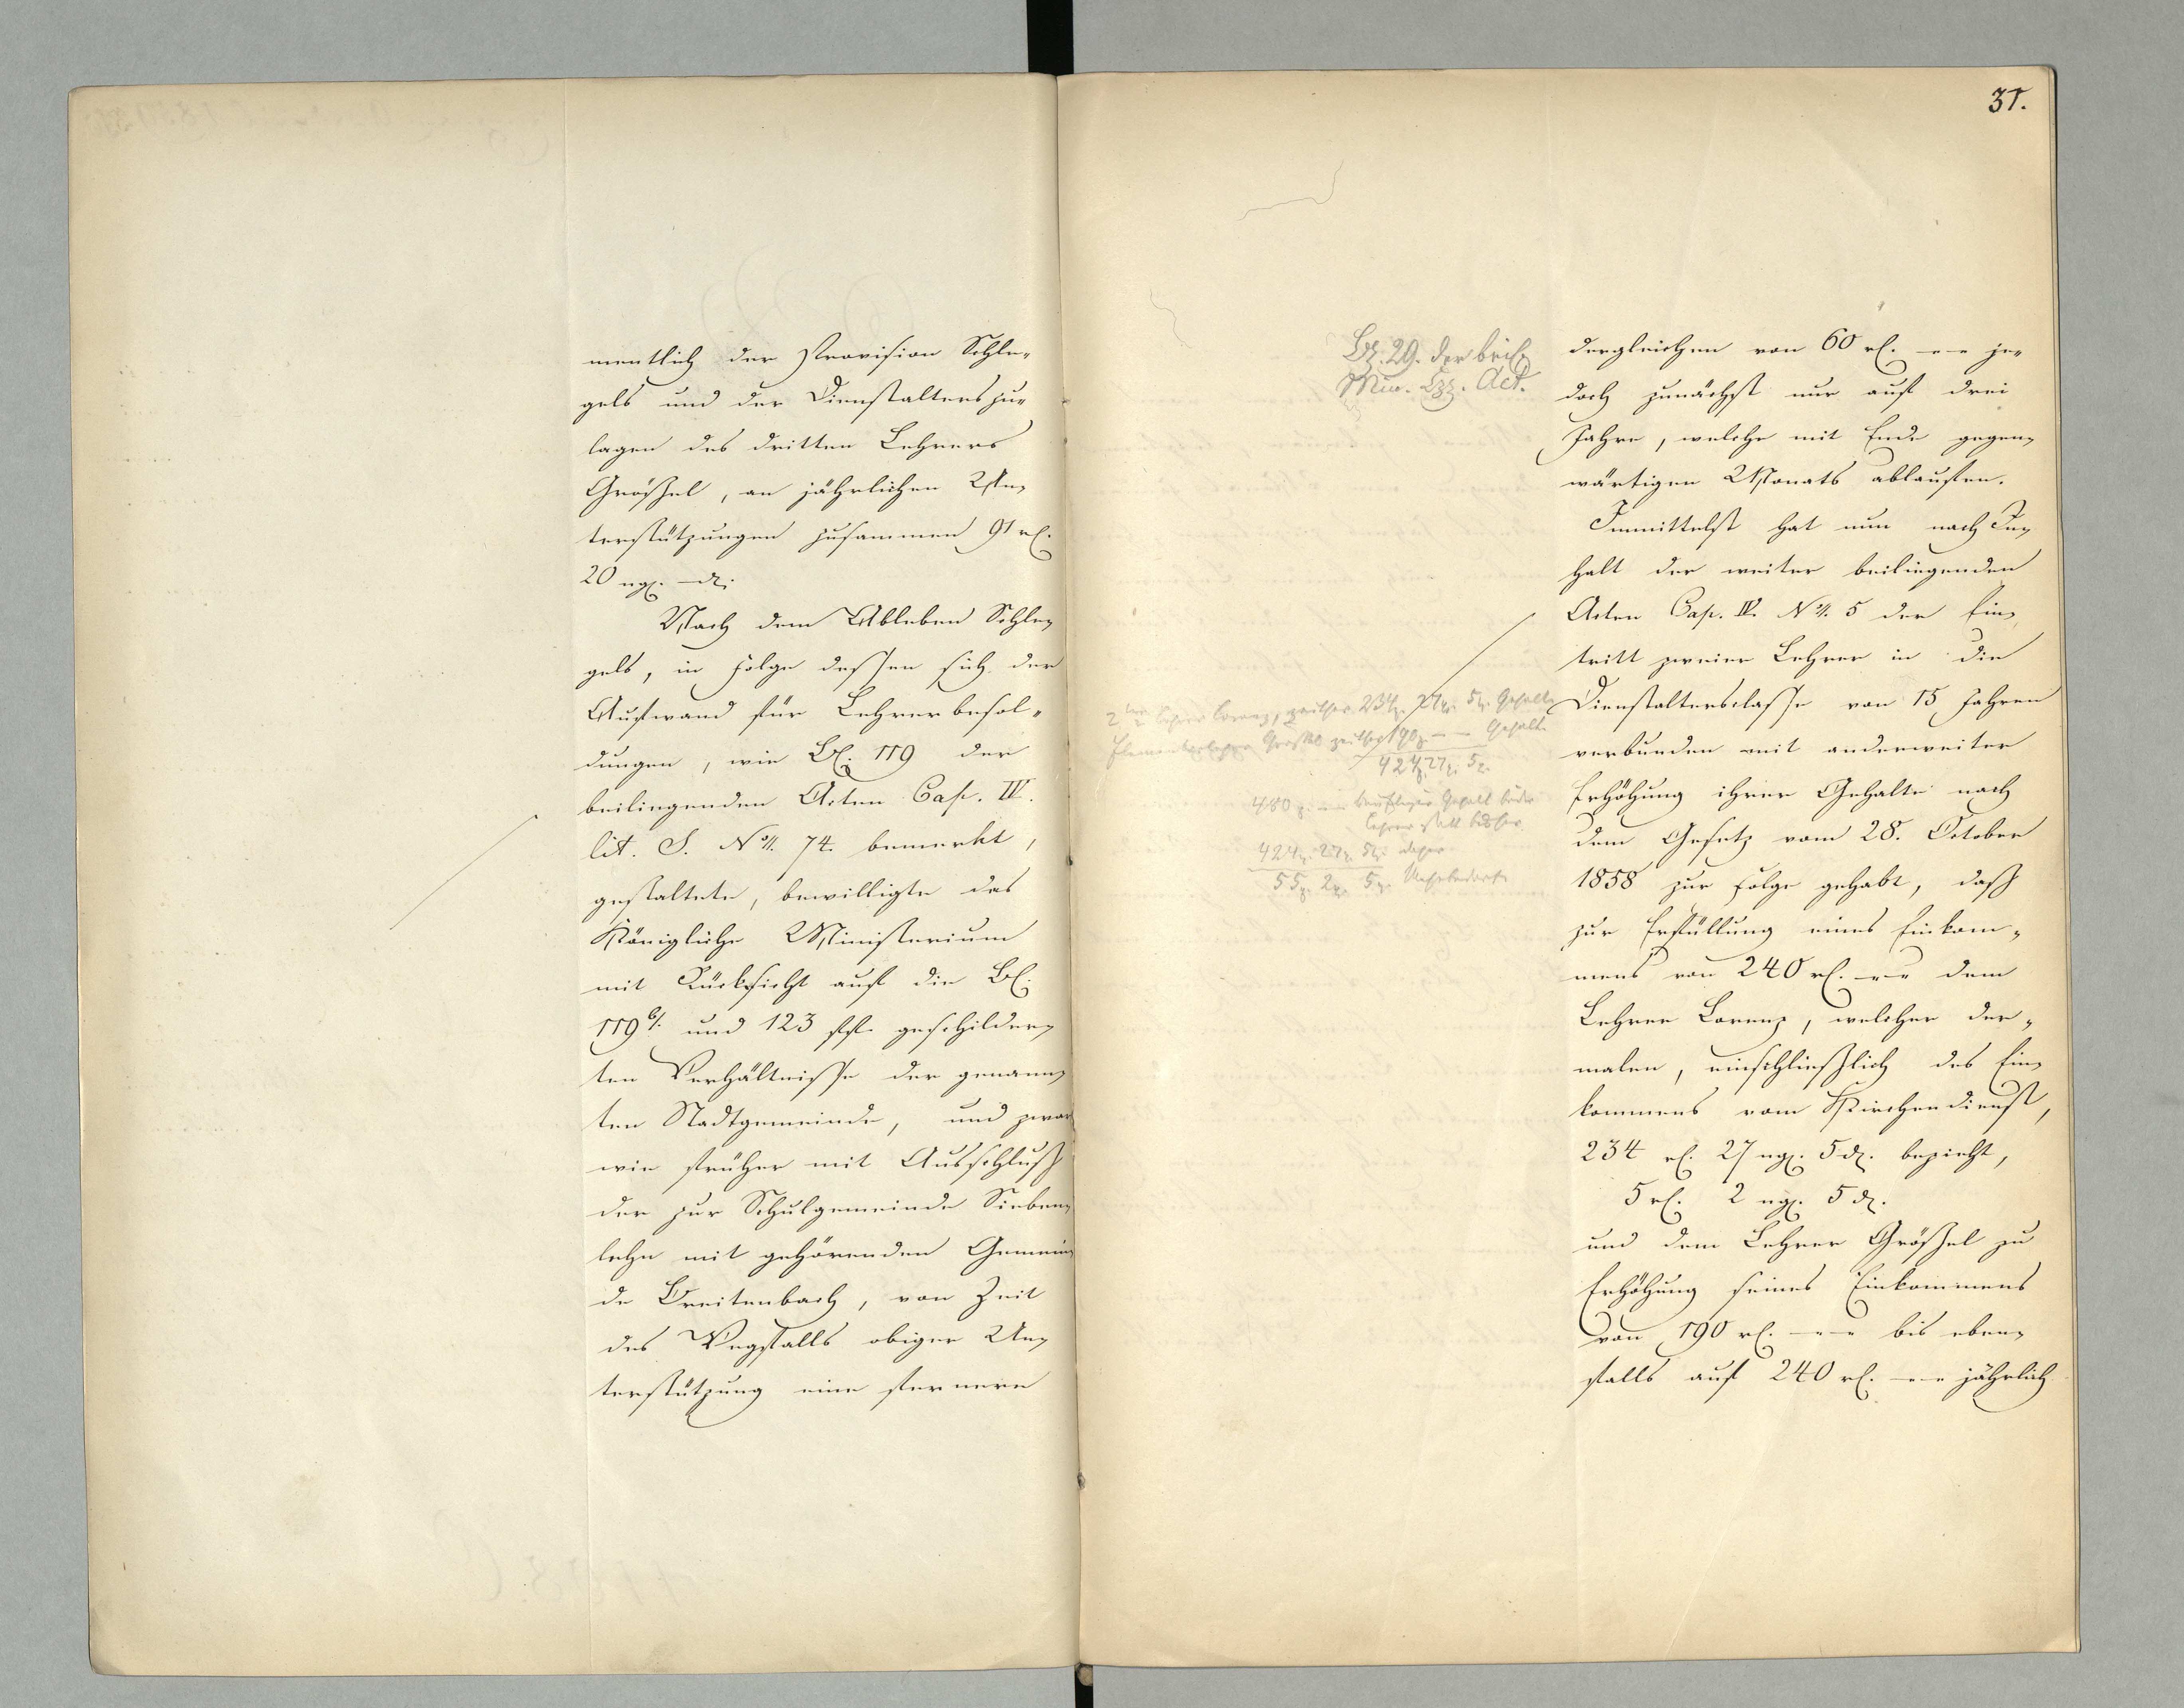 mentlich der Provision Schle-
gels und der Dienstalterszu-
lagen des dritten Lehrers
Größel, an jährlichen Un-
terstützungen zusammen 91 rl.
20 ngr. - d.
Nach dem Ableben Schle-
gels, in Folge dessen sich der
Aufwand für Lehrerbesol-
dungen, wie Bl. 119 der
beiliegenden Acten Cap. IV.
lit. S. No. 74. bemerkt,
gestaltete, bewilligte das
Königliche Ministerium
mit Rücksicht auf die Bl.
119b/. und 123 flf. geschilder-
ten Verhältnisse der genann-
ten Stadtgemeinde, und zwar
wie früher mit Ausschluß
der zur Schulgemeinde Sieben-
lehn mit gehörenden Gemein-
de Breitenbach, von Zeit
des Wegfalls obiger Un-
terstützung eine fernere
31.
Bl. 29. der beil.
Min. Act.
dergleichen von 60 rl. - - je-
doch zunächst nur auf drei
Jahre, welche mit Ende gegen-
wärtigen Monats ablaufen.
Inmittelst hat nun nach In-
halt der weiter beiliegenden
Acten Cap. IV. No. 5 der Ein-
tritt zweier Lehrer in die
Dienstaltersclasse von 15 Jahren
verbunden mit anderweiter
Erhöhung ihrer Gehalte nach
dem Gesetz vom 28. October
1858 zur Folge gehabt, daß
zur Erfüllung eines Einkom-
mens von 240 rl. - - dem
Lehrer Lorenz, welcher der-
malen, einschließlich des Ein-
kommens vom Kirchendienst,
234 rl. 27 ngr. 5 d. bezieht,
5 rl. 2 ngr. 5 d.
und dem Lehrer Größel zu
Erhöhung seines Einkommens
von 190 rl. - - bis eben-
falls auf 240 rl. - - jährlich
2ter Lehrer Lorenz, zeither 234 27 5 Gehalt
Elementarlehrer Größel zeither 190 - - Gehalt
424 27 5
480 - - künftiger Gehalt beider
Lehrer statt bisher
424 27 5 daher
55 2 5 Mehrbedarf